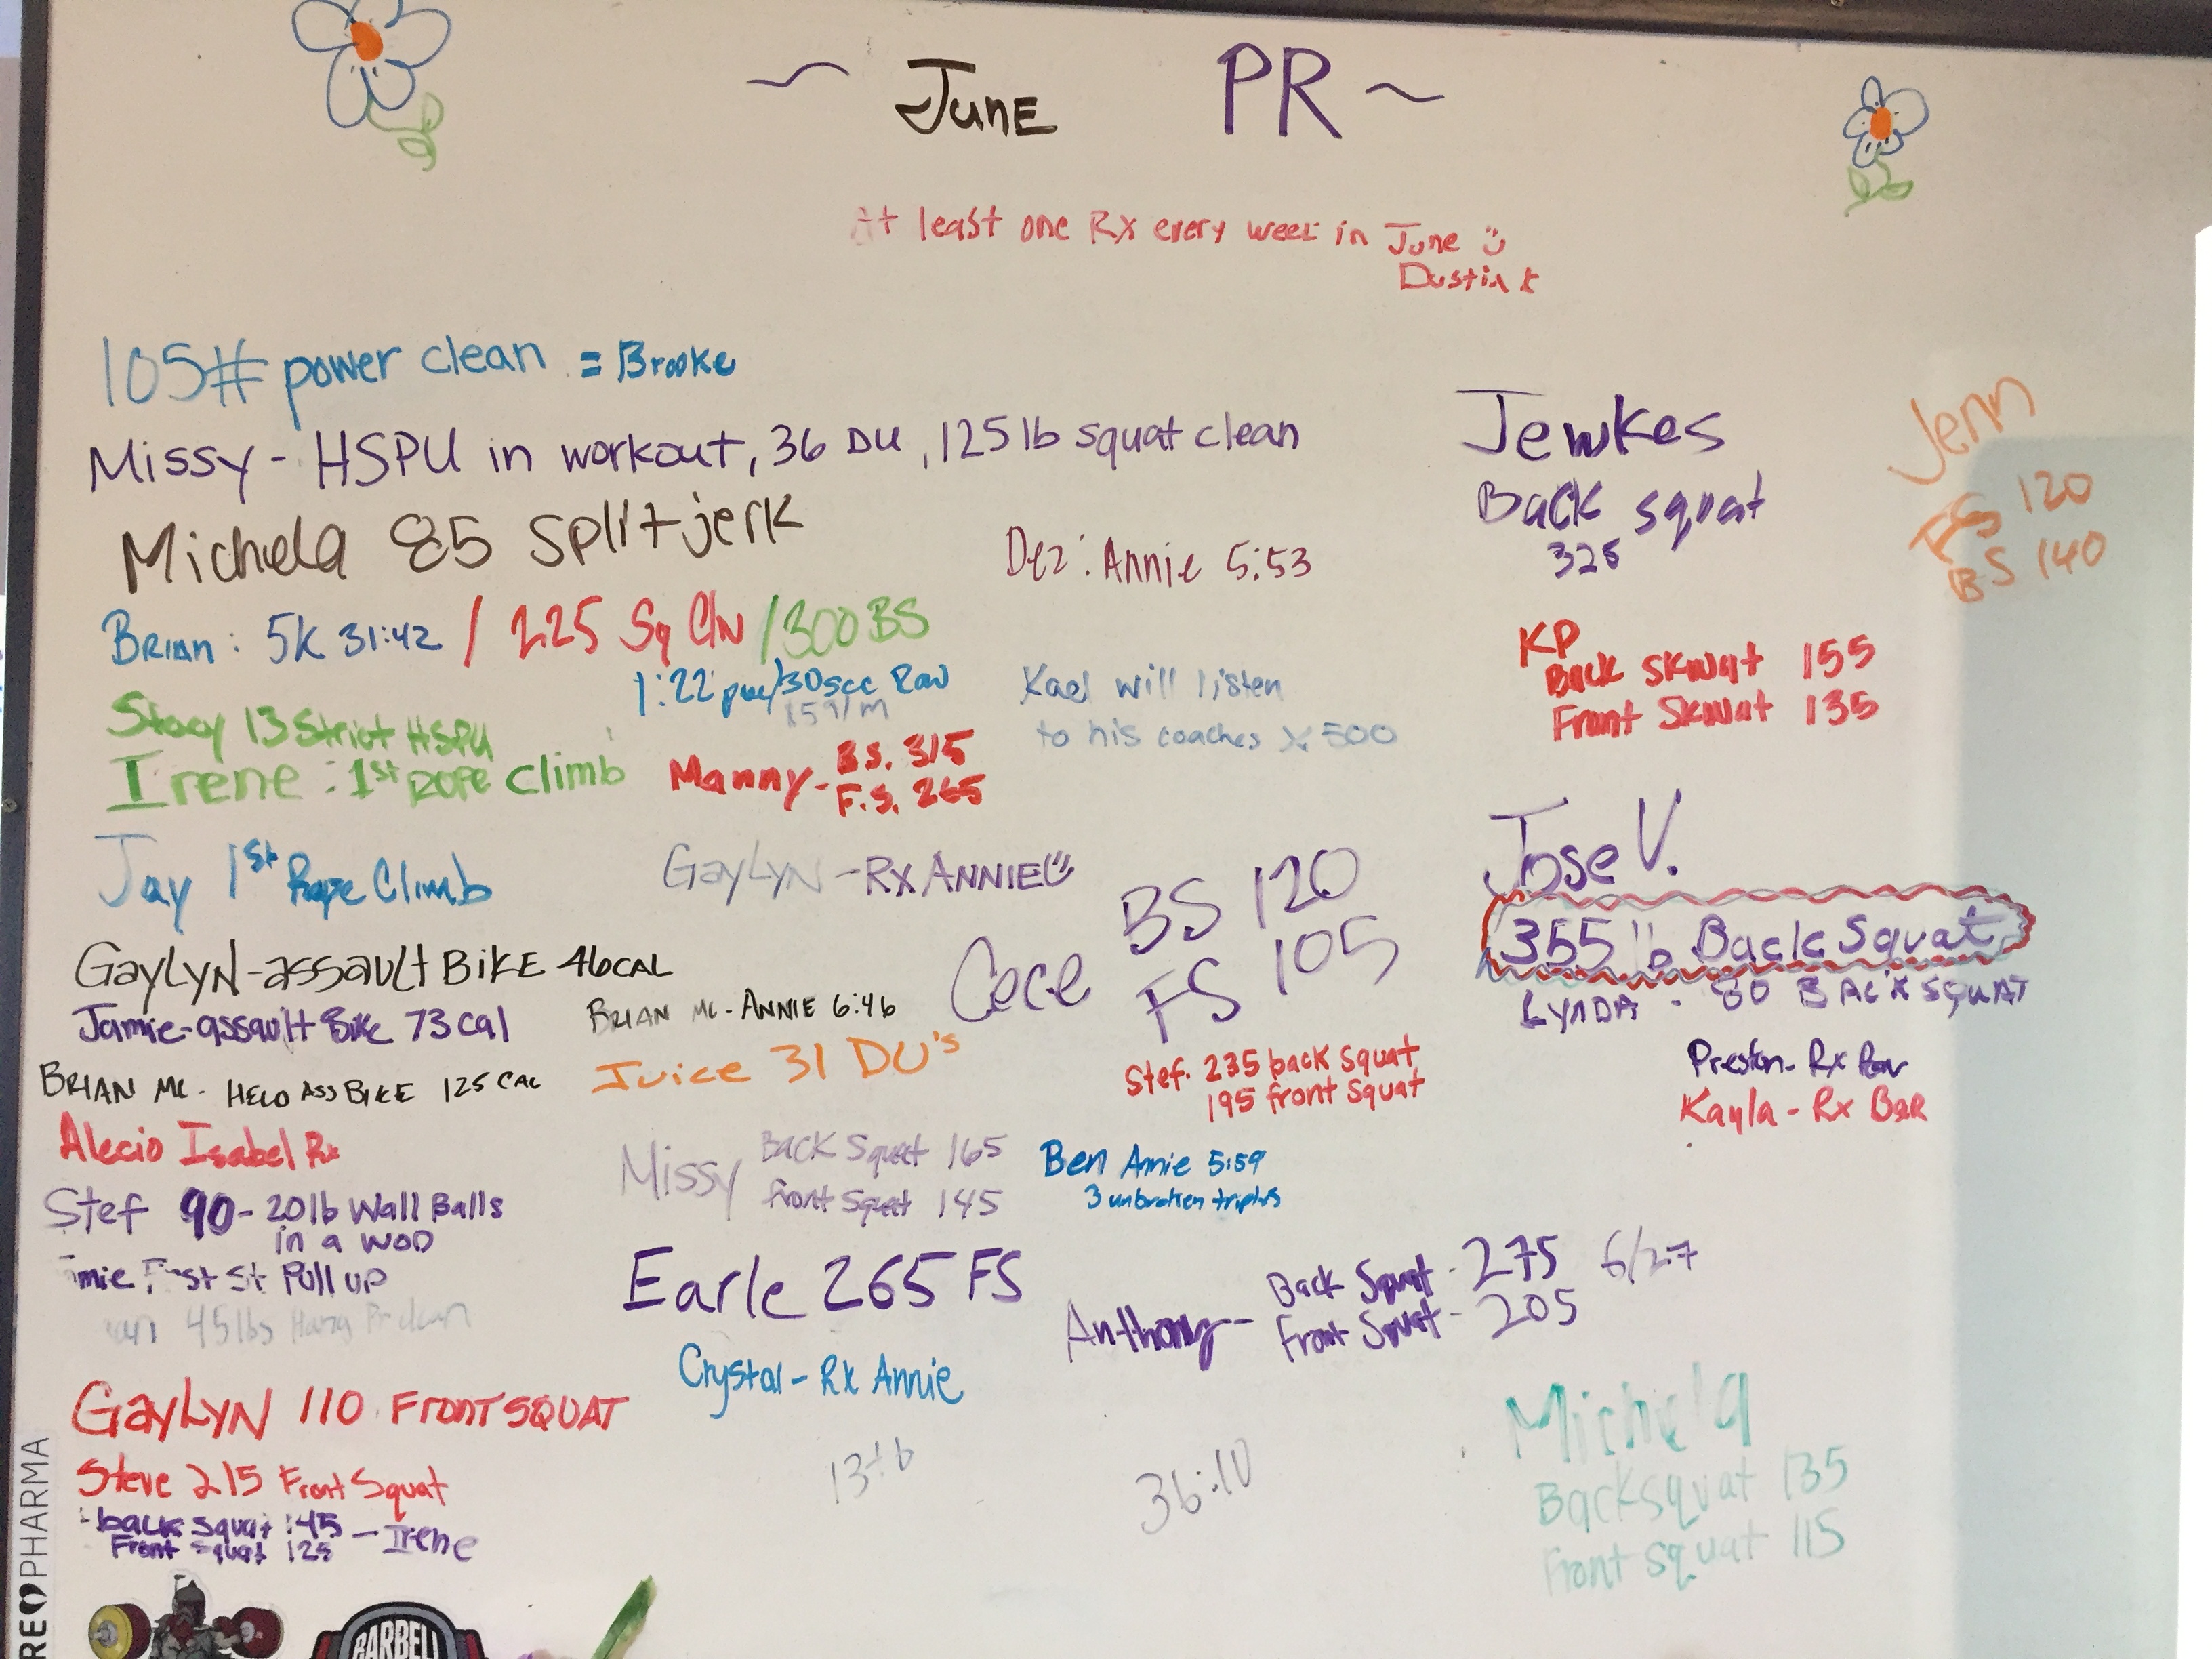 June PR
At least one Rx every week in June
Dustin k
105# power clean = Brooke
Missy - HSPU in workout, 36 DU, 125 lb squat clean
Michela 85 split jerk
Dez: Annie 5:53
Brian: 5K 31:42 / 225 Sq Cln / 300 BS
1:22 pace/30sec Row
Stacy 13 Strict HSPU
Irene: 1st ROPE Climb
Manny - B.S. 315
F.S. 265
Kael will listen
to his coaches x 500
Jay 1st Rope Climb
GayLYN - Rx ANNIE
GayLYN - assault BIKE 46CAL
Jamie - assault Bike 73 cal
BRIAN MC. - ANNIE 6:46
BRIAN MC - HELO ASS BIKE 125 CAL
Juice 31 DU's
Cece BS 120
FS 105
Stef. 235 back squat
195 front squat
Alecio Isabel Rx
Missy Back Squat 165
front Squat 145
Ben Annie 5:59
3 unbroken triples
Stef 90 - 20lb Wall Balls
in a WOD
First St Pull up
45lbs Hang P. clean
Earle 265 FS
Anthony - Back Squat - 275 6/27
Front Squat - 205
Crystal - Rx Annie
GayLYN 110 FRONT SQUAT
Steve 215 Front Squat
back squat 145
Front squat 125 - Irene
36:10
Jewkes
Back squat
325
Jenn
FS 120
BS 140
KP
Back Skwat 155
Front Skwat 135
Jose V.
355 lb Back Squat
LYNDA - 80 BACK SQUAT
Preston - Rx
Kayla - Rx Bar
Michela
Backsquat 135
Front squat 115
PHARMA
BARBELL